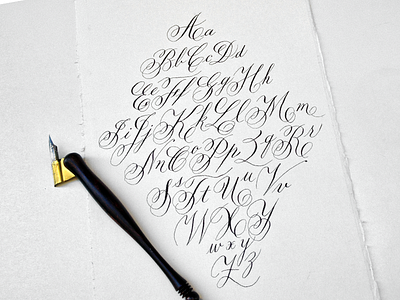 Aa
Bb Cc Dd
Ee Ff Gg Hh
Ii Jj Kk Ll Mm
Nn Oo Pp Qq Rr
Ss Tt Uu Vv
W X Y
w x y
Zz